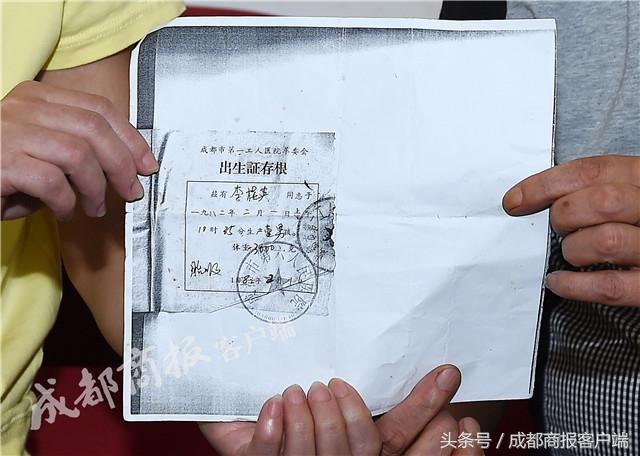 成都市第一工人医院革委会
出生証存根
兹有李桂英同志于
一九八二年二月一日
19时 分生产壹男孩。
体重3600克
成都商报客户端
头条号/成都商报客户端